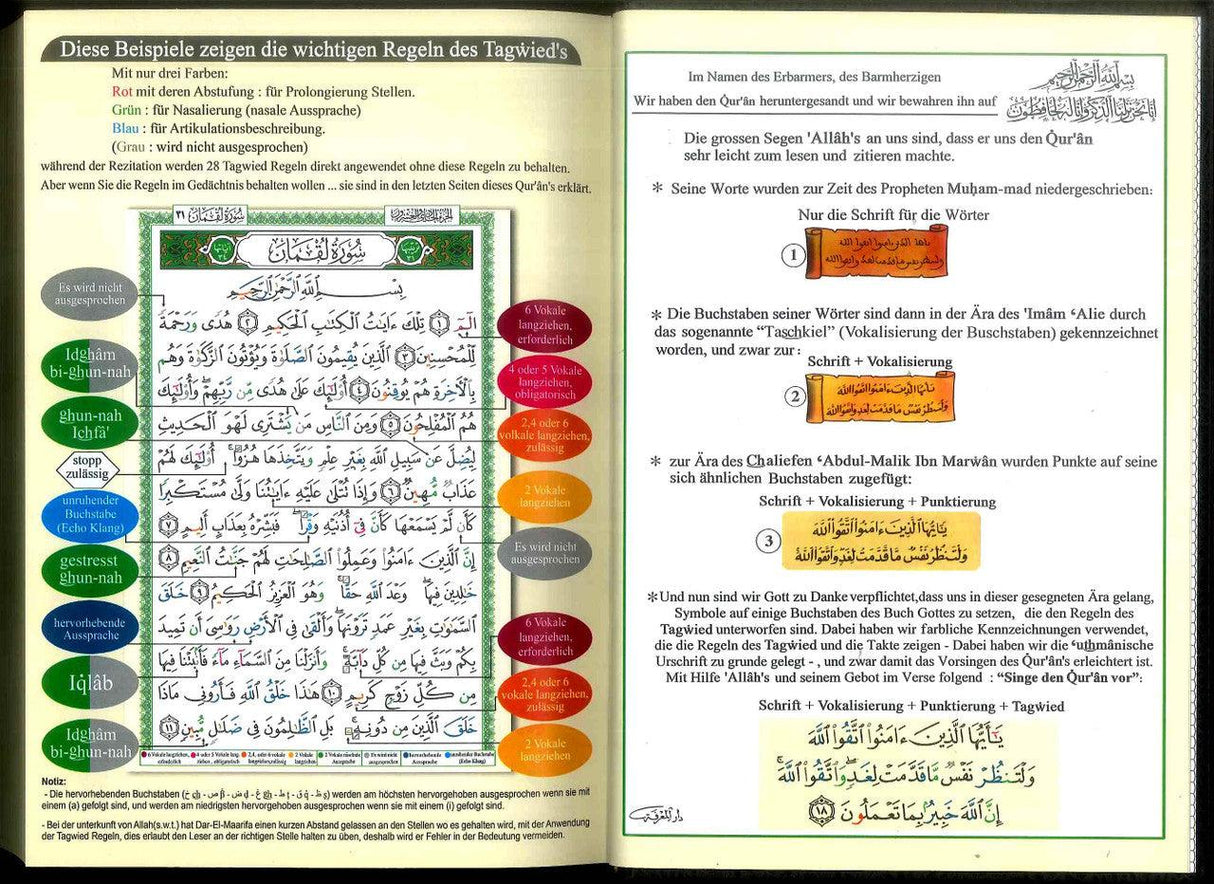 Diese Beispiele zeigen die wichtigen Regeln des Tagẇied's
Mit nur drei Farben:
Rot mit deren Abstufung : für Prolongierung Stellen.
Grün : für Nasalierung (nasale Aussprache)
Blau : für Artikulationsbeschreibung.
(Grau : wird nicht ausgesprochen)
während der Rezitation werden 28 Tagwied Regeln direkt angewendet ohne diese Regeln zu behalten.
Aber wenn Sie die Regeln im Gedächtnis behalten wollen ... sie sind in den letzten Seiten dieses Qur'ân's erklärt.
سُورَةُ لُقْمَان ٣١
سُورَةُ لُقْمَان
بِسْمِ اللَّهِ الرَّحْمَٰنِ الرَّحِيمِ
الٓمٓ ١ تِلْكَ ءَايَٰتُ ٱلْكِتَٰبِ ٱلْحَكِيمِ ٢ هُدًى وَرَحْمَةً
لِّلْمُحْسِنِينَ ٣ ٱلَّذِينَ يُقِيمُونَ ٱلصَّلَوٰةَ وَيُؤْتُونَ ٱلزَّكَوٰةَ وَهُم
بِٱلْأَخِرَةِ هُمْ يُوقِنُونَ ٤ أُو۟لَٰٓئِكَ عَلَىٰ هُدًى مِّن رَّبِّهِمْ ۖ وَأُو۟لَٰٓئِكَ
هُمُ ٱلْمُفْلِحُونَ ٥ وَمِنَ ٱلنَّاسِ مَن يَشْتَرِى لَهْوَ ٱلْحَدِيثِ
لِيُضِلَّ عَن سَبِيلِ ٱللَّهِ بِغَيْرِ عِلْمٍ وَيَتَّخِذَهَا هُزُوًا ۚ أُو۟لَٰٓئِكَ لَهُمْ
عَذَابٌ مُّهِينٌ ٦ وَإِذَا تُتْلَىٰ عَلَيْهِ ءَايَٰتُنَا وَلَّىٰ مُسْتَكْبِرًا
كَأَن لَّمْ يَسْمَعْهَا كَأَنَّ فِىٓ أُذُنَيْهِ وَقْرًا ۖ فَبَشِّرْهُ بِعَذَابٍ أَلِيمٍ ٧
إِنَّ ٱلَّذِينَ ءَامَنُوا۟ وَعَمِلُوا۟ ٱلصَّٰلِحَٰتِ لَهُمْ جَنَّٰتُ ٱلنَّعِيمِ ٨
خَٰلِدِينَ فِيهَا ۖ وَعْدَ ٱللَّهِ حَقًّا ۚ وَهُوَ ٱلْعَزِيزُ ٱلْحَكِيمُ ٩ خَلَقَ
ٱلسَّمَٰوَٰتِ بِغَيْرِ عَمَدٍ تَرَوْنَهَا ۖ وَأَلْقَىٰ فِى ٱلْأَرْضِ رَوَٰسِىَ أَن تَمِيدَ
بِكُمْ وَبَثَّ فِيهَا مِن كُلِّ دَآبَّةٍ ۚ وَأَنزَلْنَا مِنَ ٱلسَّمَآءِ مَآءً فَأَنۢبَتْنَا فِيهَا
مِن كُلِّ زَوْجٍ كَرِيمٍ ١٠ هَٰذَا خَلْقُ ٱللَّهِ فَأَرُونِى مَاذَا
خَلَقَ ٱلَّذِينَ مِن دُونِهِۦ ۚ بَلِ ٱلظَّٰلِمُونَ فِى ضَلَٰلٍ مُّبِينٍ ١١
Es wird nicht
ausgesprochen
Idghâm
bi-ghun-nah
ghun-nah
Ichfâ'
stopp
zulässig
unruhender
Buchstabe
(Echo Klang)
gestresst
ghun-nah
hervorhebende
Aussprache
Iqlâb
Idghâm
bi-ghun-nah
6 Vokale
langziehen,
erforderlich
4 oder 5 Vokale
langziehen,
obligatorisch
2,4 oder 6
volkale langziehen,
zulässig
2 Vokale
langziehen
Es wird nicht
ausgesprochen
6 Vokale
langziehen,
erforderlich
2,4 oder 6
vokale langziehen,
zulässig
2 Vokale
langziehen
Notiz:
- Die hervorhebenden Buchstaben werden am höchsten hervorgehoben ausgesprochen wenn sie mit
einem (a) gefolgt sind, und werden am niedrigsten hervorgehoben ausgesprochen wenn sie mit einem (i) gefolgt sind.
- Bei der unterkunft von Allah(s.w.t.) hat Dar-El-Maarifa einen kurzen Abstand gelassen an den Stellen wo es gehalten wird, mit der Anwendung
der Tagwied Regeln, dies erlaubt den Leser an der richtigen Stelle halten zu üben, deshalb wird er Fehler in der Bedeutung vermeiden.
Im Namen des Erbarmers, des Barmherzigen
بِسْمِ اللَّهِ الرَّحْمَٰنِ الرَّحِيمِ
Wir haben den Q̇ur'ân heruntergesandt und wir bewahren ihn auf
إِنَّا نَحْنُ نَزَّلْنَا الذِّكْرَ وَإِنَّا لَهُ لَحَافِظُونَ
Die grossen Segen 'Allâh's an uns sind, dass er uns den Q̇ur'ân
sehr leicht zum lesen und zitieren machte.
* Seine Worte wurden zur Zeit des Propheten Muḥam-mad niedergeschrieben:
Nur die Schrift für die Wörter
1
* Die Buchstaben seiner Wörter sind dann in der Ära des 'Imâm ʻAlie durch
das sogenannte “Taschkiel” (Vokalisierung der Buschstaben) gekennzeichnet
worden, und zwar zur :
Schrift + Vokalisierung
2
* zur Ära des Chaliefen ʻAbdul-Malik Ibn Marwân wurden Punkte auf seine
sich ähnlichen Buchstaben zugefügt:
Schrift + Vokalisierung + Punktierung
3
يَٰٓأَيُّهَا ٱلَّذِينَ ءَامَنُوا۟ ٱتَّقُوا۟ ٱللَّهَ
وَلْتَنظُرْ نَفْسٌ مَّا قَدَّمَتْ لِغَدٍ وَٱتَّقُوا۟ ٱللَّهَ
*Und nun sind wir Gott zu Danke verpflichtet,dass uns in dieser gesegneten Ära gelang,
Symbole auf einige Buchstaben des Buch Gottes zu setzen, die den Regeln des
Tagẇied unterworfen sind. Dabei haben wir farbliche Kennzeichnungen verwendet,
die die Regeln des Tagẇied und die Takte zeigen - Dabei haben wir die ʻuthmânische
Urschrift zu grunde gelegt - , und zwar damit das Vorsingen des Q̇ur'ân's erleichtert ist.
Mit Hilfe 'Allâh's und seinem Gebot im Verse folgend : “Singe den Q̇ur'ân vor”:
Schrift + Vokalisierung + Punktierung + Tagẇied
يَٰٓأَيُّهَا ٱلَّذِينَ ءَامَنُوا۟ ٱتَّقُوا۟ ٱللَّهَ
وَلْتَنظُرْ نَفْسٌ مَّا قَدَّمَتْ لِغَدٍ ۖ وَٱتَّقُوا۟ ٱللَّهَ ۚ
إِنَّ ٱللَّهَ خَبِيرٌۢ بِمَا تَعْمَلُونَ ١٨
دار المعرفة